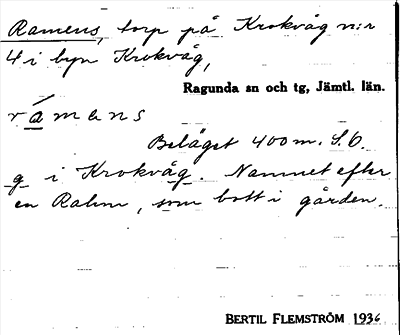 Ramens, torp på Krokvåg n:r
4 i byn Krokvåg,
Ragunda sn och tg, Jämtl. län.
rámens
Beläget 400 m. S. O.
g i Krokvåg. Namnet efter
en Rahm, som bott i gården.
BERTIL FLEMSTRÖM 1936